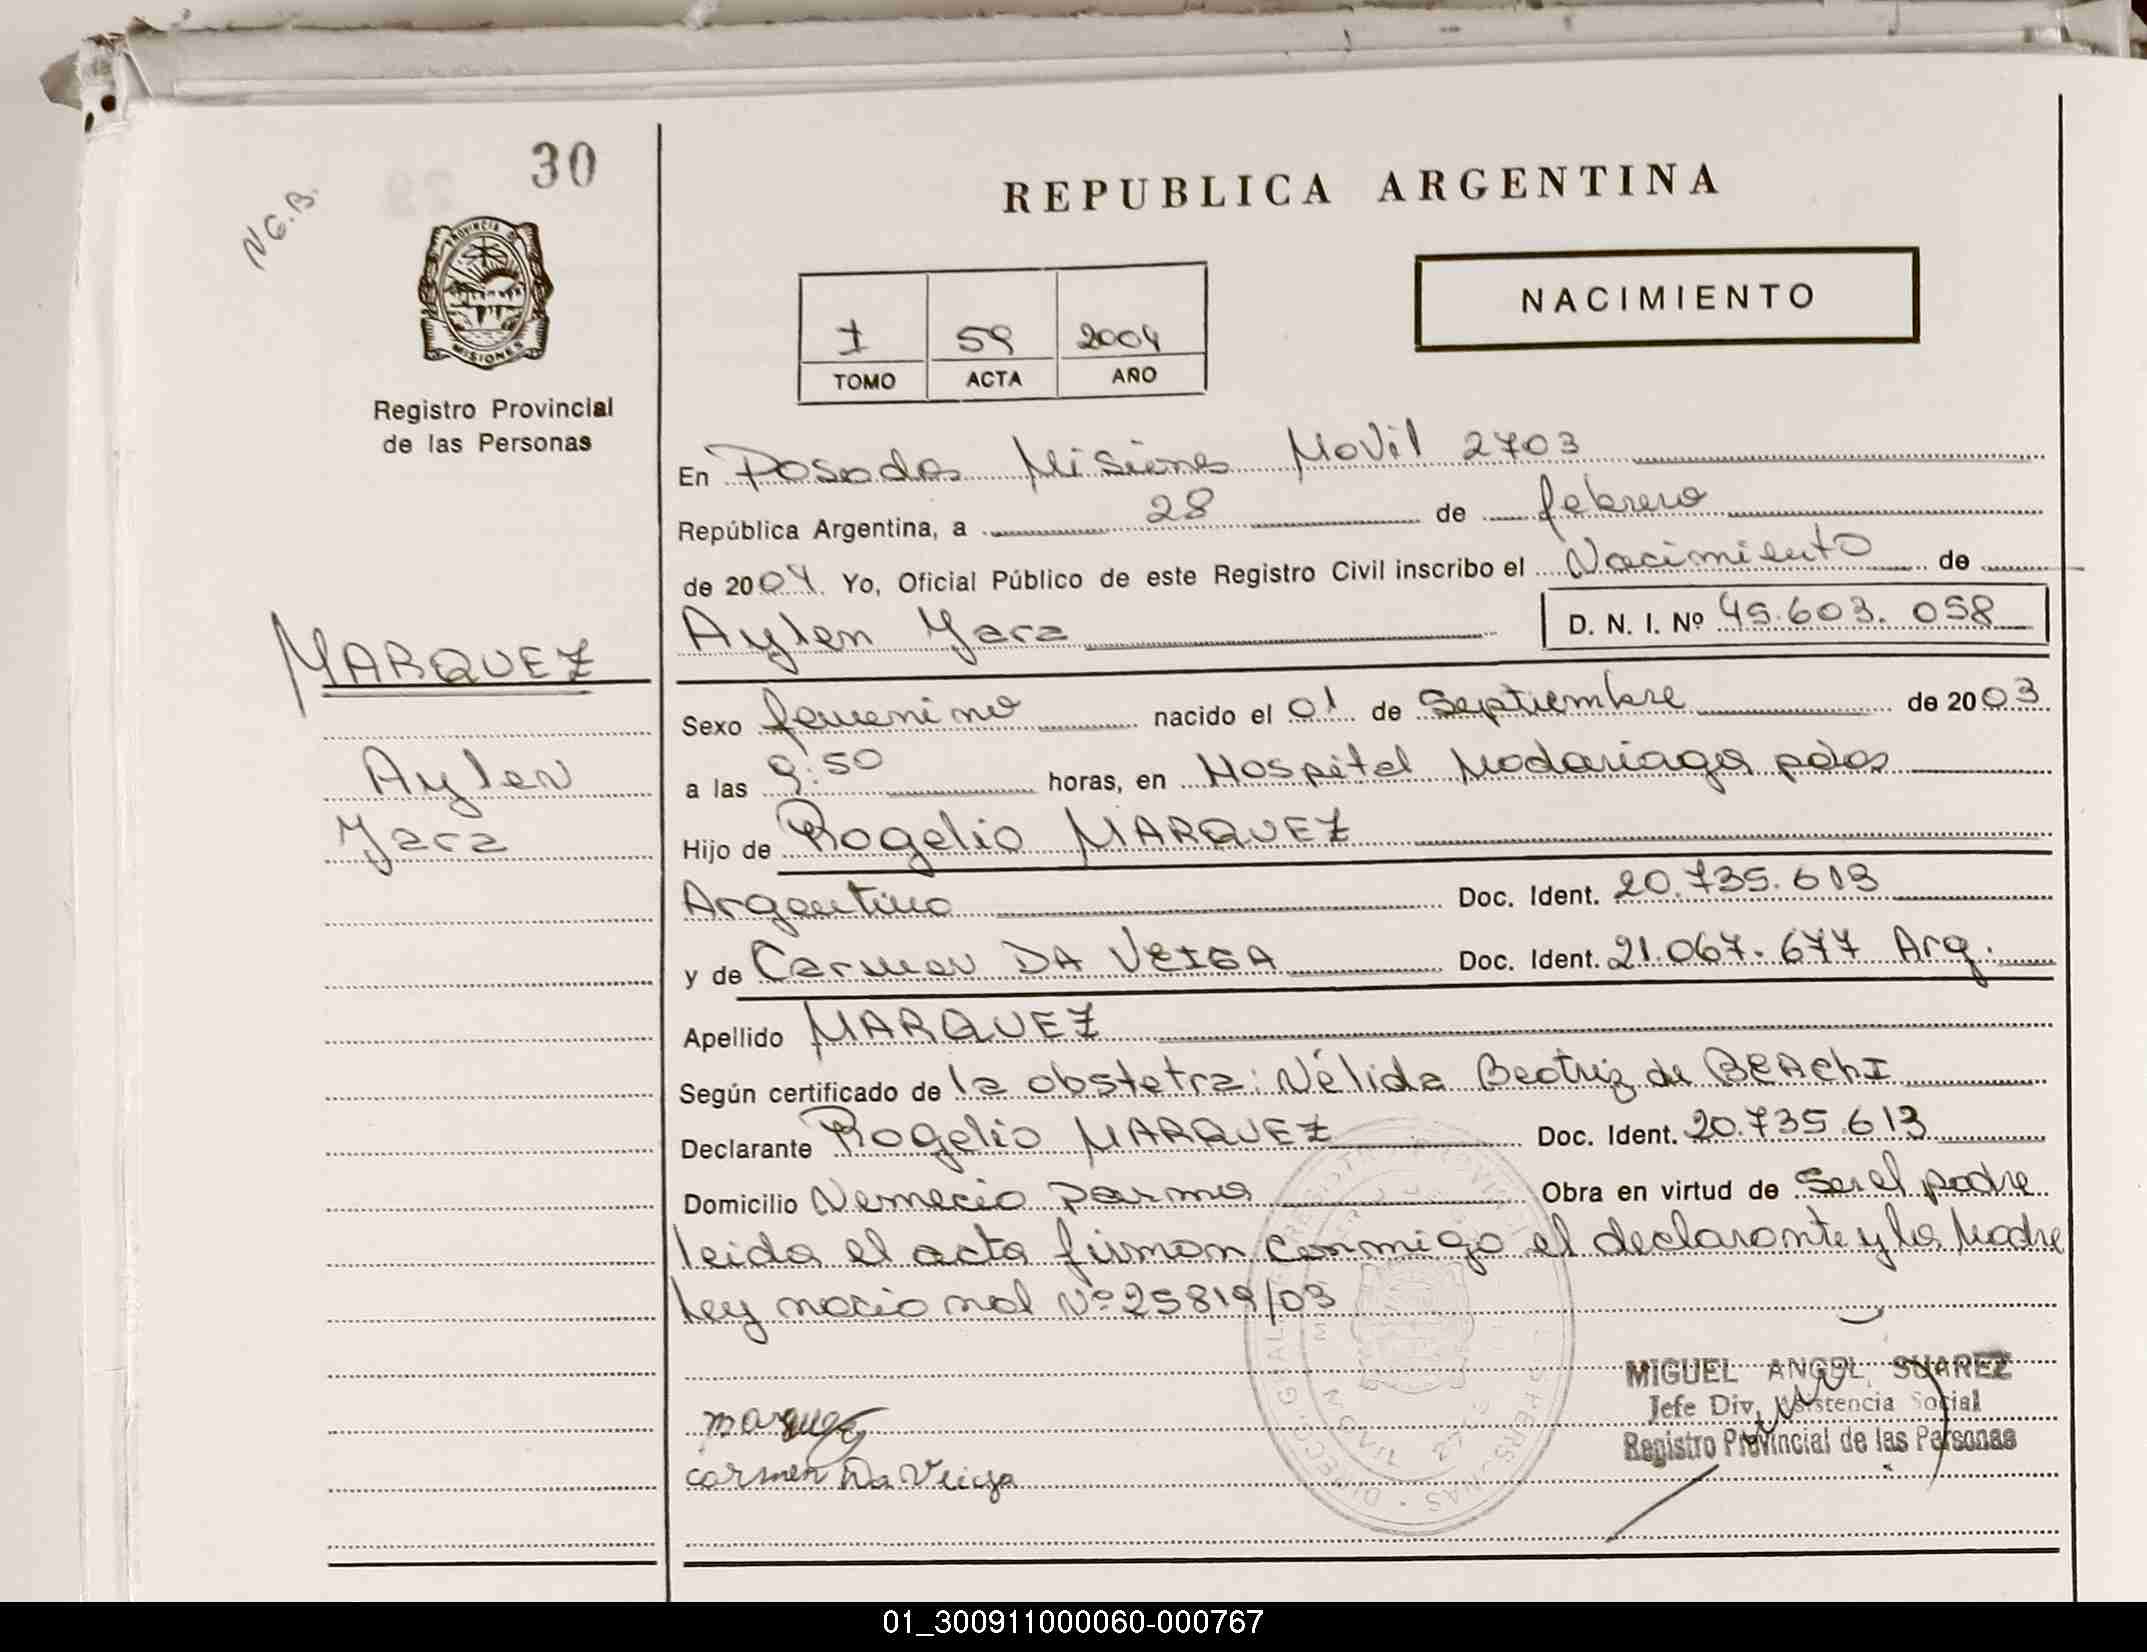 30
N G.B.
PROVINCIA D
MISIONES
Registro Provincial
de las Personas
MARQUEZ
Aylen
Yara
REPUBLICA ARGENTINA
NACIMIENTO
I 59 2004
TOMO ACTA AÑO
En Posadas Misiones Movil 2703
República Argentina, a 28 de febrero
de 2004. Yo, Oficial Público de este Registro Civil inscribo el Nacimiento de
Aylen Yara D. N. I. Nº 45.603.058
Sexo femenino nacido el 01 de Septiembre de 2003
a las 9:50 horas, en Hospital Madariaga pdas
Hijo de Rogelio MARQUEZ
Argentino Doc. Ident. 20.735.613
y de Carmen DA VEIGA Doc. Ident. 21.067.677 Arg.
Apellido MARQUEZ
Según certificado de la obstetra: Nélida Beatriz de
Declarante Rogelio MARQUEZ Doc. Ident. 20.735.613
Domicilio Nemecio Parma Obra en virtud de Ser el padre
leida el acta firman conmigo el declarante y la Madre
Ley nacional Nº 25819/03
MIGUEL ANGEL SUAREZ
Jefe Div. Asistencia Social
Registro Provincial de las Personas
Marquez
Carmen Da Veiga
01_300911000060-000767